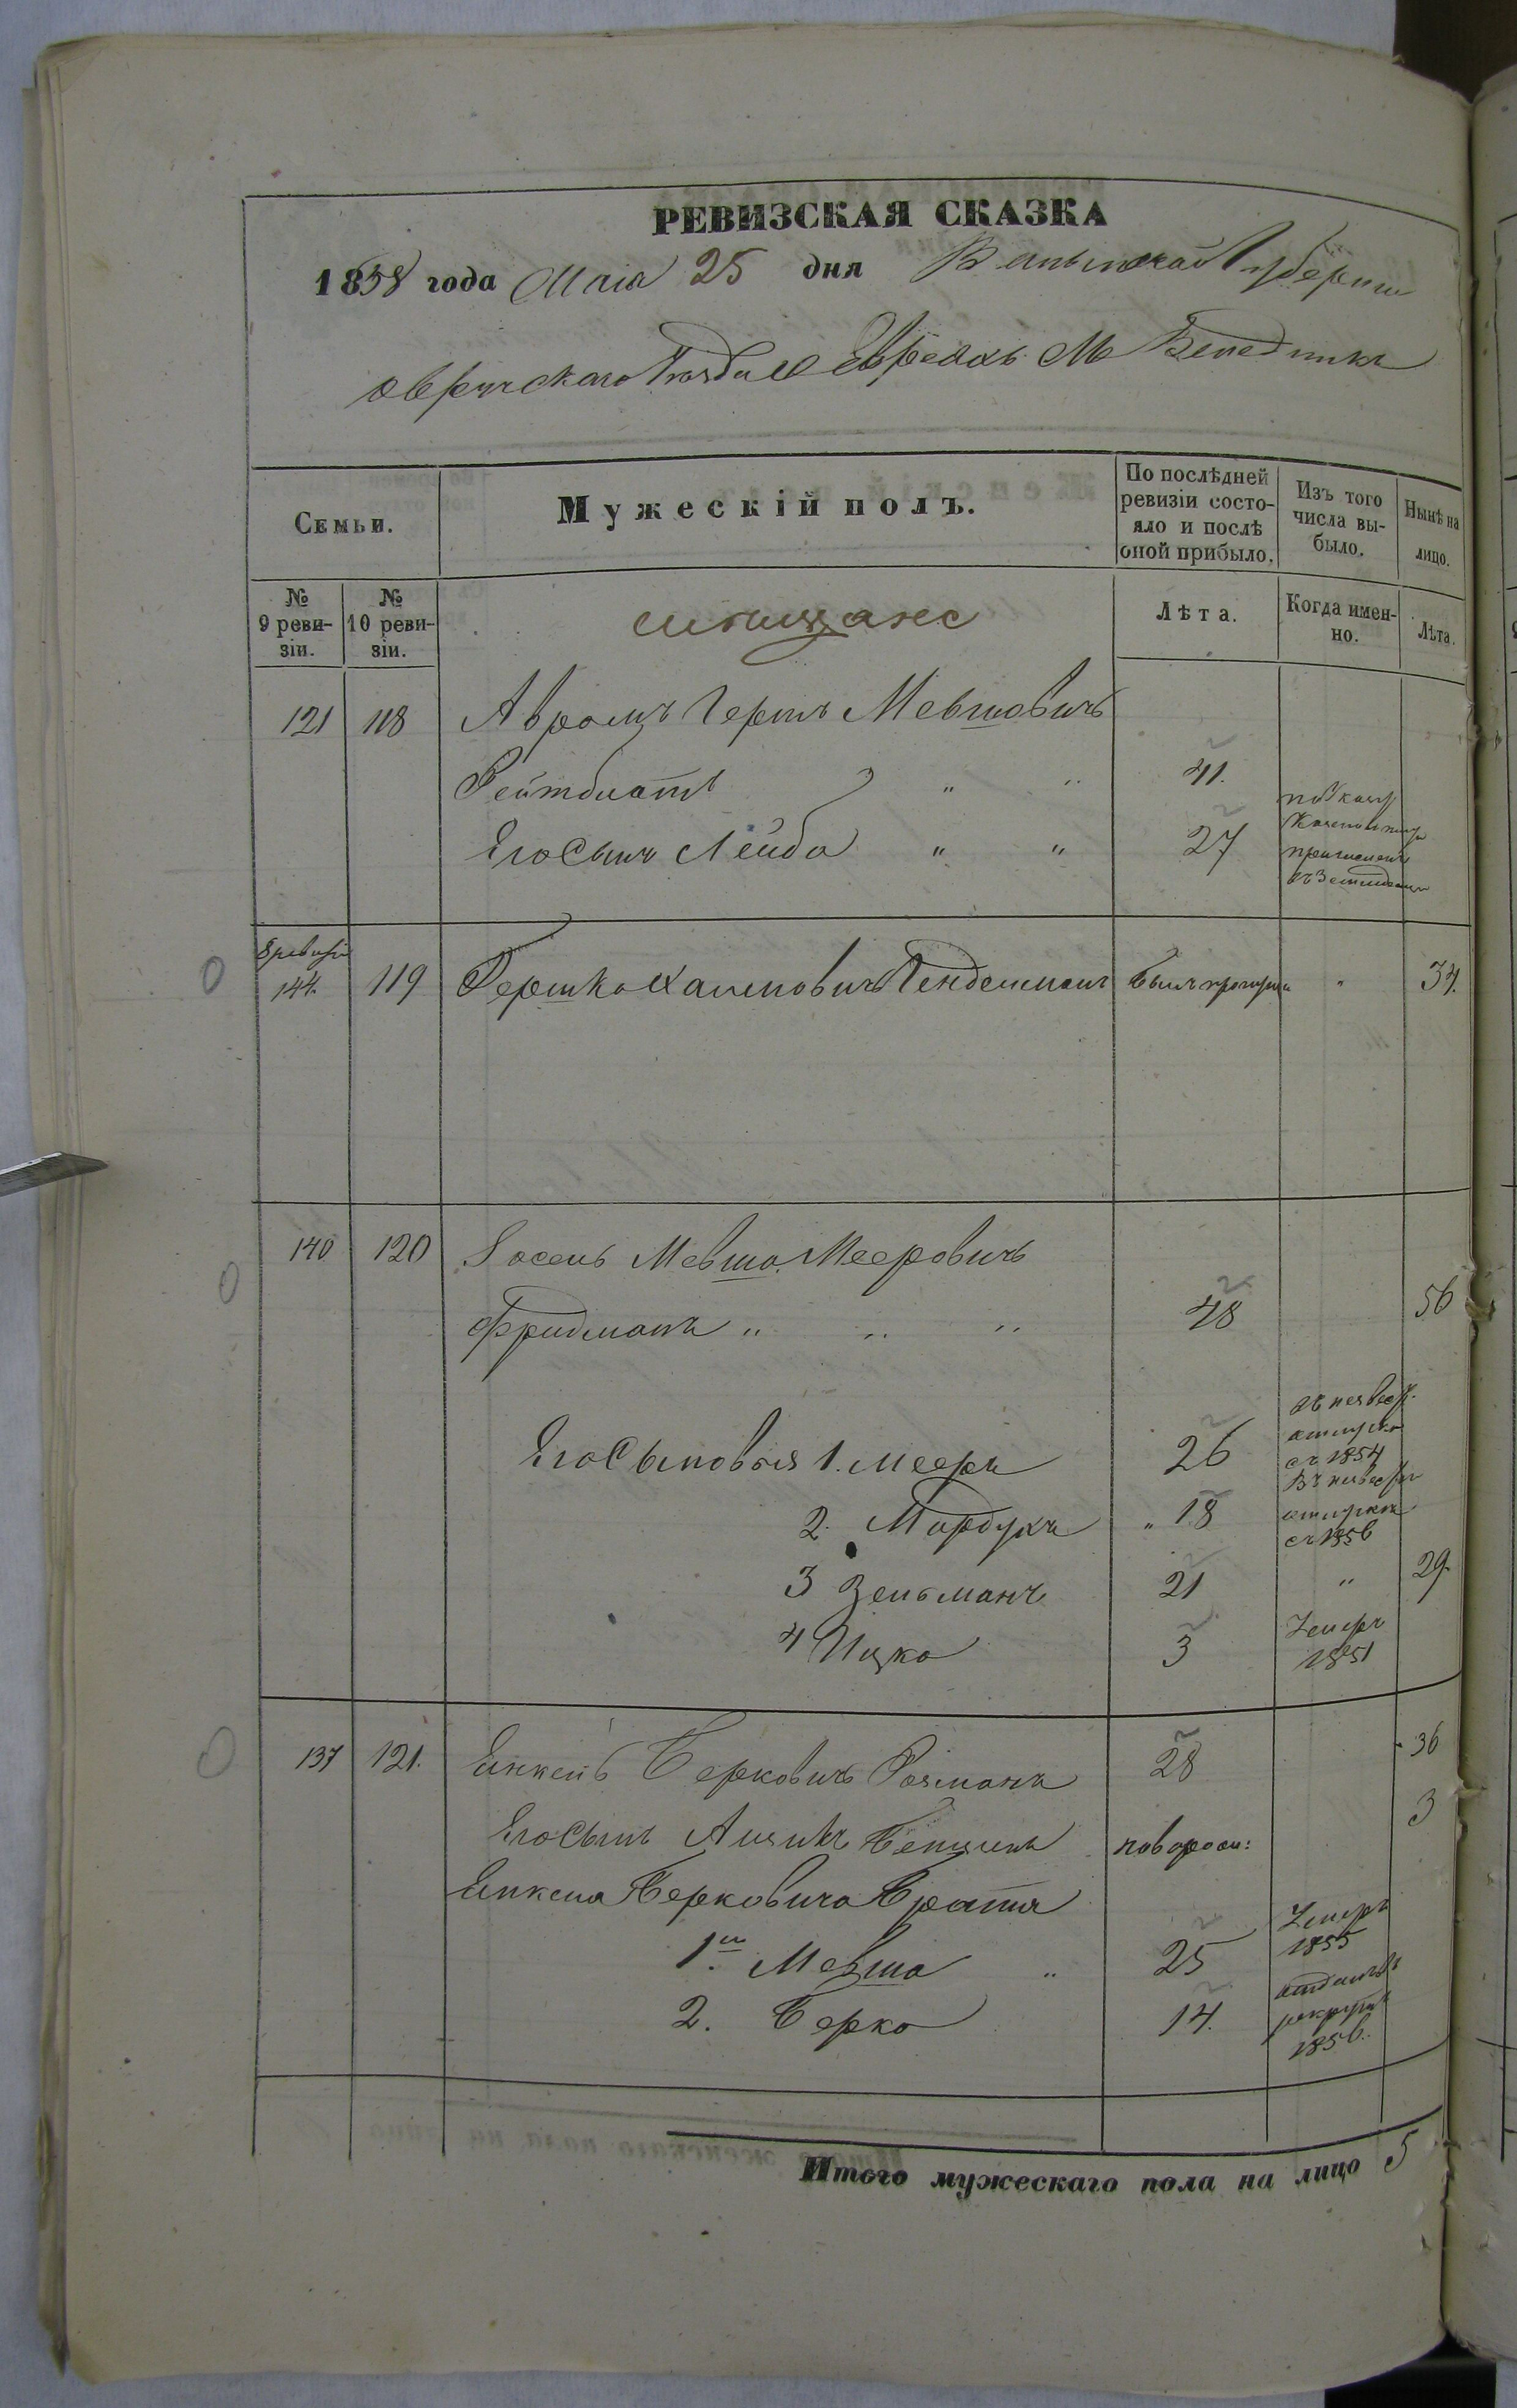 РЕВИЗСКАЯ СКАЗКА
1858 года Мая 25 дня Волынской Губерніи
Овручскаго Уезда о Евреяхъ М
Семьи.
Мужескій полъ.
По послѣдней ревизіи состо-
яло и послѣ оной прибыло.
Изъ того числа вы-
было.
Нынѣ на лицо.
№ 9 реви-
зіи.
№ 10 реви-
зіи.
мѣщане
Лѣта.
Когда имен-
но.
Лѣта.
121 118 Авромъ Гершъ Мевшовичъ
" " 41.
Его Сынъ Лейба " " 27
8 ревизіи
144. 119 Гершко Хаимовичъ Гендельманъ былъ " 34.
140 120 Мевша Мееровичъ
Фридманъ " " " 48 56
Его Сыновья 1. Мееръ 26
отлучкѣ
съ 1854
2. Мордухъ " 18
отлучкѣ
съ 1856
3 Зельманъ 21 " 29.
4 Ицко 3 Умеръ
1851
137 121. Янкель Берковичъ 28 36
Его Сынъ новорож: 3
Янкеля Берковича Братья
1й Мевша " 25 Умеръ
1855
2. Берко 14. отданъ въ
рекруты
1856.
Итого мужескаго пола на лицо 5